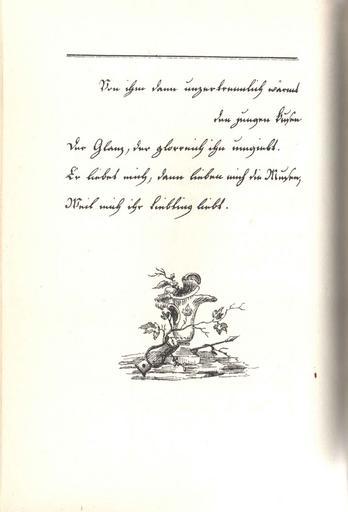 Von ihm dann unzertrennlich wärmt
den jungen Busen
Der Glanz, der glorreich ihn umgiebt.
Er liebet mich, dann lieben mich die Musen,
Weil mich ihr Liebling liebt.